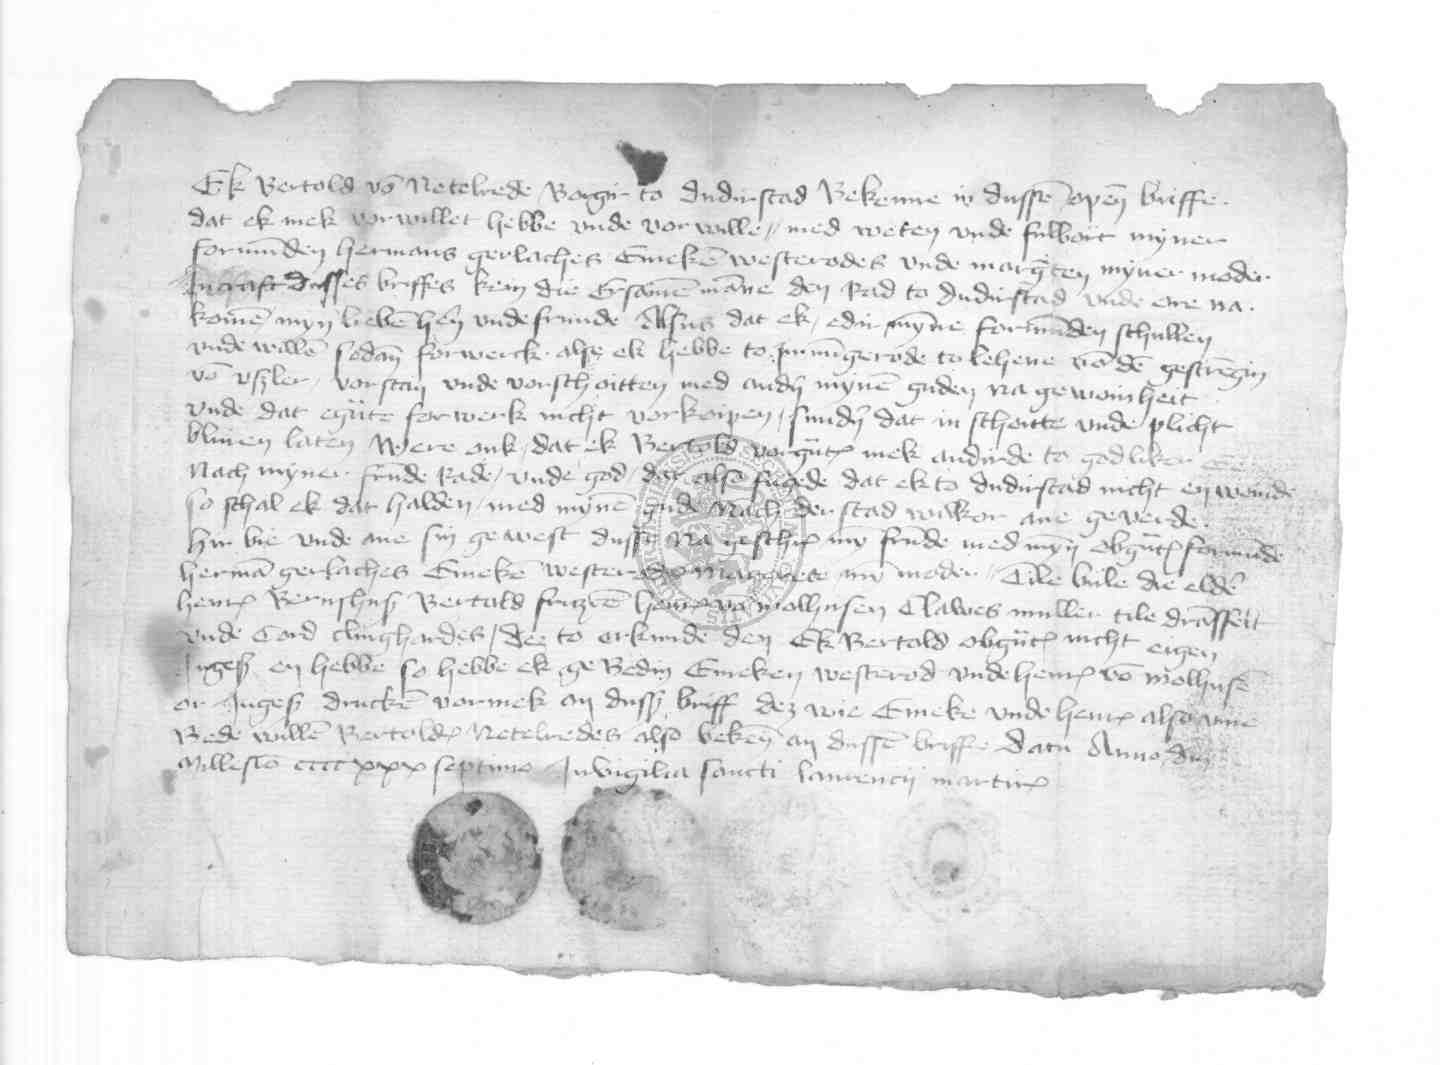 Ek Bertold vō Netelrede Borgir to dudirstad Bekenne in dussē opēn briffe
dat ek mek vorwillet hebbe vnde vorwille med weten vnde fulbort myner
formūnden hermans gerlaches Emekē westerodes vnde margreten myner moder
In craft dusses briffes kein die Ersamē māne den Rad to dudirstad vnde ore na
komē myn liebē hēn vnde frunde Alsus dat ek edir myne formūnden schullen
vnde wollē sodan forwerck alse ek hebbe to to lehene vō dē gestrēgin
vō vsler vorstan vnde vorschoitten med andn mynē guden na gewonheit
vnde dat egnte forwerk nicht vorkoipen sundn dat in schoitte vnde plicht
bliuen laten Were ouk dat ek Bertold vorgnt mek andirde to godliker
Nach myner frūde Rade vnde god dat also fugede dat ek to dudirstad nicht en
so schal ek dat halden med mynē gude Nach der stad wilkor ane geverde
hir bie vnde ane sin gewest dusse na geschr my frūde med myn obgnt formūde
hermā gerlaches Emeke westerod Margrete my moder Tile bile die eldē
henr Bernshus Bertold fritzē henr vō molhusen Clawes muller tile drāsfelt
vnde Cord clinghardes des to orkunde den Ek Bertold obgnt nicht eigen
Ingesz en hebbe so hebbe ek ge Bedin Emeken westerod vnde henr vō molhusē
or Ingesz druckē vor mek an dussz briff dez wie Emeke vnde henr also vmme
Bede willē Bertoldz Netelredes also bekēn an dussē briffe Datu Anno dm
Millesio cccc xxx septimo In vigilia sancti laurencij martir